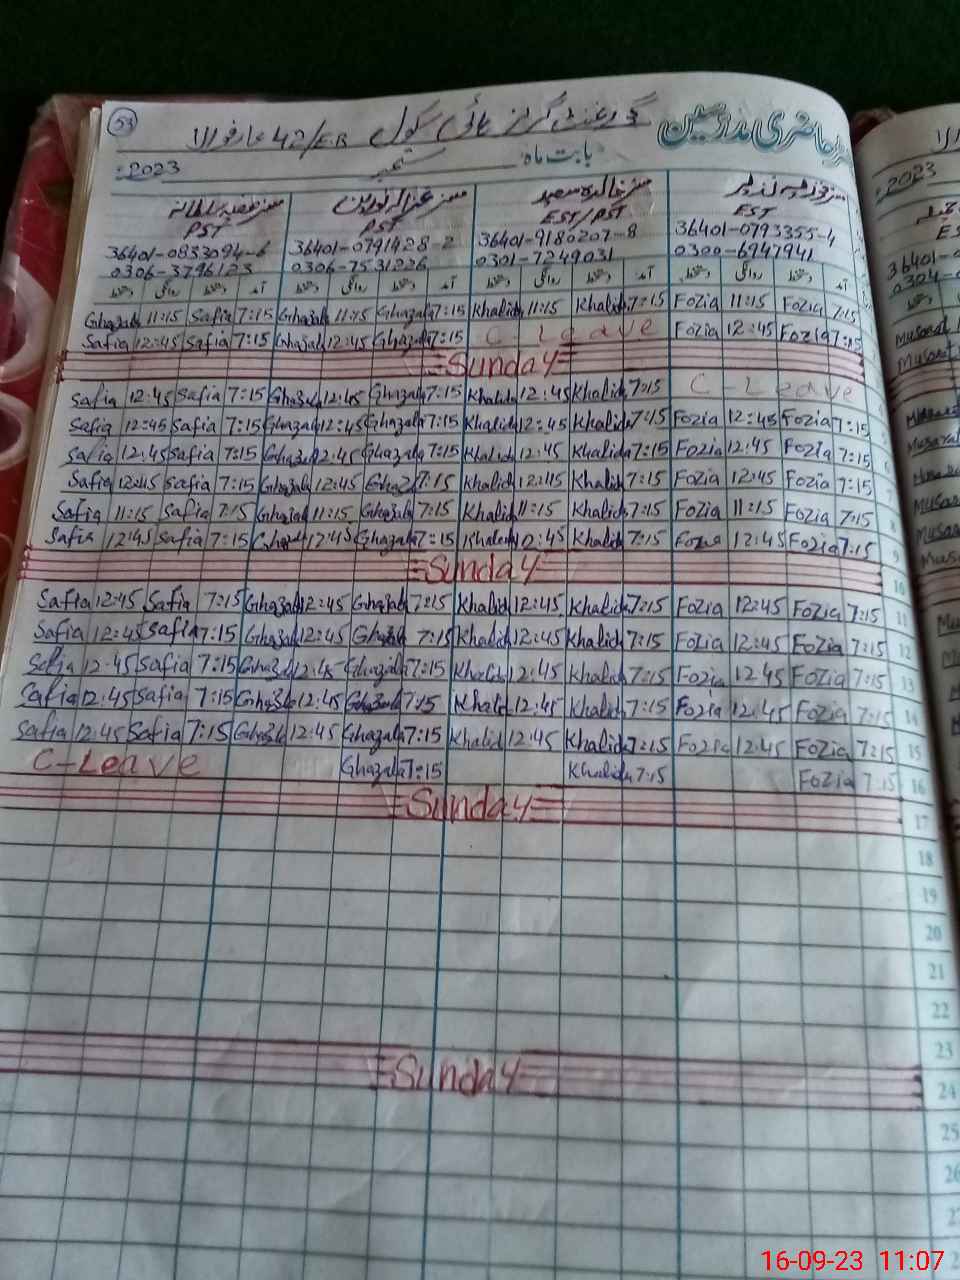 53 گورنمنٹ گرلز ہائی سکول 42/EB عارفوالا حاضری مدرسین
2023 بابت ماہ ستمبر
مسز صفیہ سلطانہ مسز غزالہ نورین مسز خالدہ سعید مسز فوزیہ نذیر
PST PST EST/PST EST
36401-0833094-6 36401-0791428-2 36401-9180207-8 36401-0793355-4
0306-3796123 0306-7531226 0301-7249031 0300-6947941
دستخط روانگی دستخط آمد دستخط روانگی دستخط آمد دستخط روانگی دستخط آمد دستخط روانگی دستخط آمد
Ghazala 11:15 Safia 7:15 Ghazala 11:15 Ghazala 7:15 Khalida 11:15 Khalida 7:15 Fozia 11:15 Fozia 7:15
Safia 12:45 Safia 7:15 Ghazala 12:45 Ghazala 7:15 C-Leave Fozia 12:45 Fozia 7:15
Sunday
Safia 12:45 Safia 7:15 Ghazala 12:45 Ghazala 7:15 Khalida 12:45 Khalida 7:15 C-Leave
Safia 12:45 Safia 7:15 Ghazala 12:45 Ghazala 7:15 Khalida 12:45 Khalida 7:15 Fozia 12:45 Fozia 7:15
Safia 12:45 Safia 7:15 Ghazala 12:45 Ghazala 7:15 Khalida 12:45 Khalida 7:15 Fozia 12:45 Fozia 7:15 6
Safia 12:45 Safia 7:15 Ghazala 12:45 Ghazala 7:15 Khalida 12:45 Khalida 7:15 Fozia 12:45 Fozia 7:15 7
Safia 11:15 Safia 7:15 Ghazala 11:15 Ghazala 7:15 Khalida 11:15 Khalida 7:15 Fozia 11:15 Fozia 7:15 8
Safia 12:45 Safia 7:15 Ghazala 12:45 Ghazala 7:15 Khalida 12:45 Khalida 7:15 Fozia 12:45 Fozia 7:15 9
Sunday 10
Safia 12:45 Safia 7:15 Ghazala 12:45 Ghazala 7:15 Khalida 12:45 Khalida 7:15 Fozia 12:45 Fozia 7:15 11
Safia 12:45 Safia 7:15 Ghazala 12:45 Ghazala 7:15 Khalida 12:45 Khalida 7:15 Fozia 12:45 Fozia 7:15 12
Safia 12:45 Safia 7:15 Ghazala 12:45 Ghazala 7:15 Khalida 12:45 Khalida 7:15 Fozia 12:45 Fozia 7:15 13
Safia 12:45 Safia 7:15 Ghazala 12:45 Ghazala 7:15 Khalida 12:45 Khalida 7:15 Fozia 12:45 Fozia 7:15 14
Safia 12:45 Safia 7:15 Ghazala 12:45 Ghazala 7:15 Khalida 12:45 Khalida 7:15 Fozia 12:45 Fozia 7:15 15
C-Leave Ghazala 7:15 Khalida 7:15 Fozia 7:15 16
Sunday 17
18
19
20
21
22
23
Sunday 24
25
26
2023
16-09-23 11:07